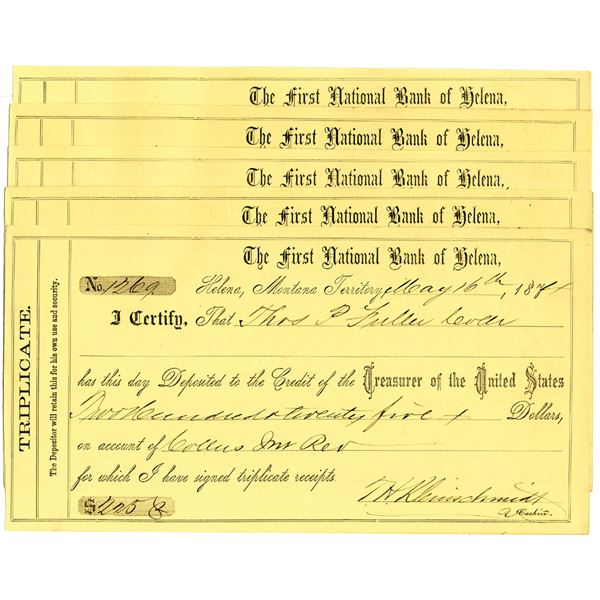 The First National Bank of Helena,
The First National Bank of Helena,
The First National Bank of Helena,
The First National Bank of Helena,
The First National Bank of Helena,
TRIPLICATE.
The Depositor will retain this for his own use and security.
No. 1269 Helena, Montana Territory, May 16th, 1874
I Certify, That Thos P Fuller Collr
has this day Deposited to the Credit of the Treasurer of the United States
Two Hundred & twenty five Dollars,
on account of Collns Int Rev
for which I have signed triplicate receipts.
$225
T H Kleinschmidt
Cashier.